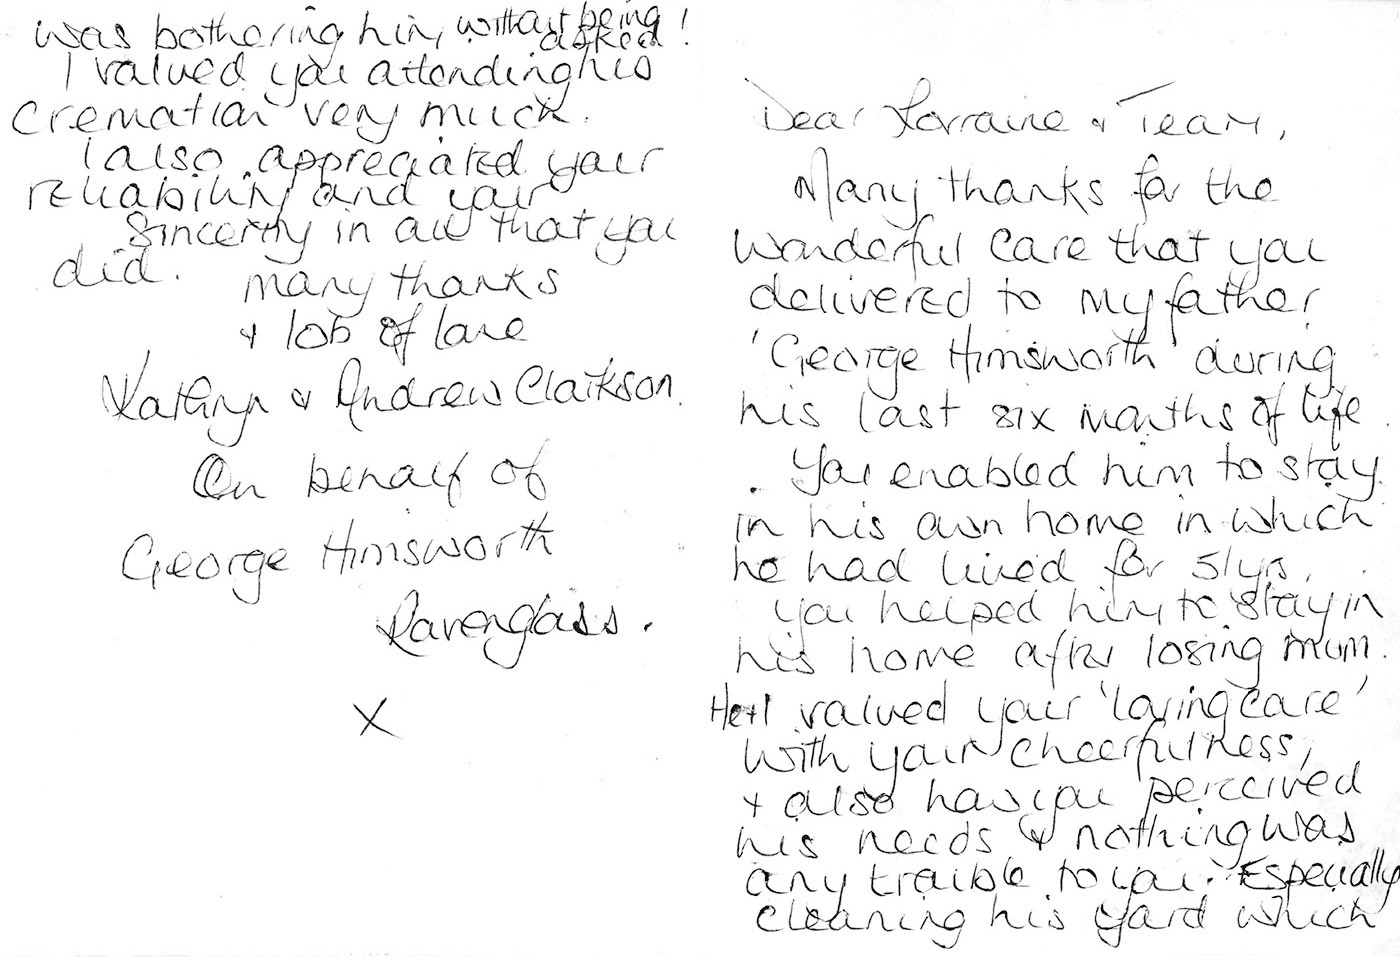 Dear Lorraine & Team,
Many thanks for the
wonderful care that you
delivered to my father
'George Himsworth' during
his last six months of life.
You enabled him to stay
in his own home in which
he had lived for 51yrs.
You helped him to stay in
his home after losing mum.
He+I valued your 'loving care'
with your cheerfulness,
+ also how you perceived
his needs & nothing was
any trouble to you. Especially
cleaning his yard which
was bothering him, without being
asked!
I valued you attending his
cremation very much.
I also appreciated your
reliability and your
sincerity in all that you
did.
many thanks
& lots of love
Kathryn & Andrew Clarkson.
On behalf of
George Himsworth
Ravenglass.
X